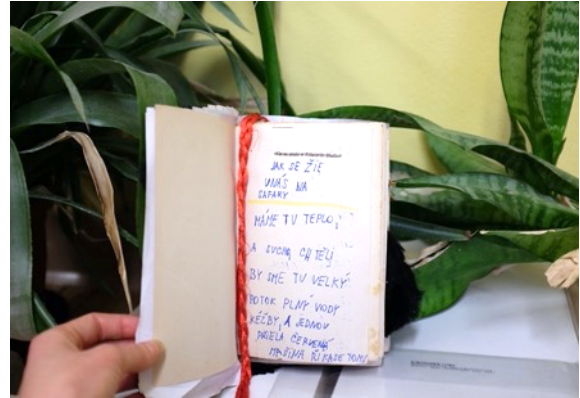 JAK SE ŽIE
UNÁS NA
SAFARY
MÁME TU TEPLO,
A SUCHO, CHTĚLI
BY SME TU VELKÝ
POTOK PLNÝ VODY
KÉŽBY, A JEDNOU
PŘIJELA ČERVENÁ
MAŠINA